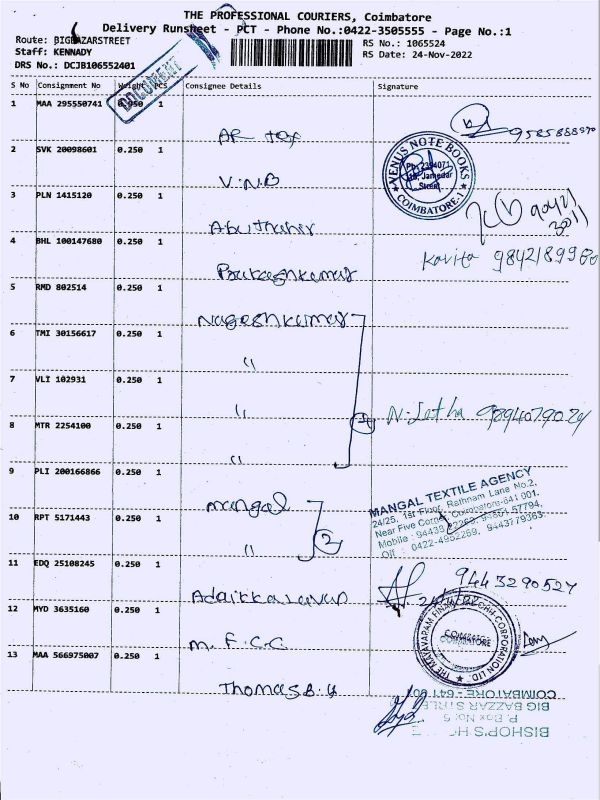 THE PROFESSIONAL COURIERS, Coimbatore
Delivery Runsheet - PCT - Phone No.:0422-3505555 - Page No.:1
Route: BIGBAZARSTREET
RS No.: 1065524
Staff: KENNADY
RS Date: 24-Nov-2022
DRS No.: DCJB106552401
DOCUMENT
S No Consignment No Weight PCS Consignee Details Signature
1 MAA 295550741 0.050 1
AR tex
2 SVK 20098601 0.250 1
V.N.B
VENUS NOTE BOOKS
Ph: 2394071
Jamedar
Street
COIMBATORE-1
3 PLN 1415120 0.250 1
Abuthahir
4 BHL 100147680 0.250 1
Prakashkumar
Kavita
5 RMD 802514 0.250 1
Nageshkumar
6 TMI 30156617 0.250 1
"
7 VLI 102931 0.250 1
"
8 MTR 2254100 0.250 1
"
4
9 PLI 200166866 0.250 1
mangal
MANGAL TEXTILE AGENCY
24/25, 1st Floor, Rathnam Lane No.2,
Near Five Corner, Coimbatore-641 001.
Off : 0422-4952269, 9443779363
10 RPT 5171443 0.250 1
"
2
11 EDQ 25108245 0.250 1
Adaikkalavan
9443290527
12 MYD 3635160 0.250 1
M.F.C.C
COIMBATORE
13 MAA 566975007 0.250 1
Thomas
BISHOP'S
P. Box No. 5
BIG BAZZAR STREET
COIMBATORE - 641 001